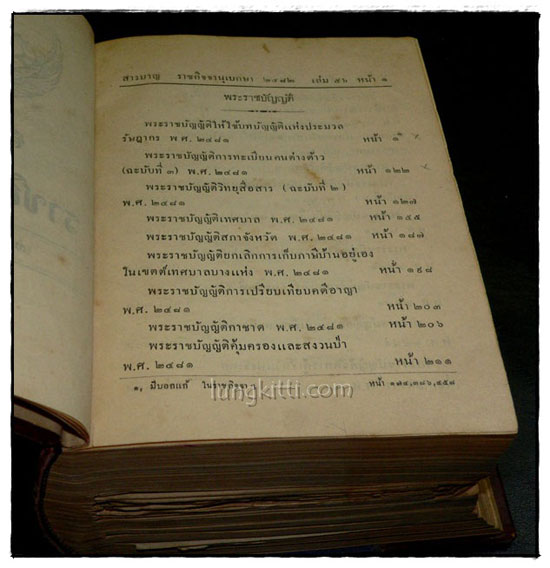 สารบาญ ราชกิจจานุเบกษา ๒๔๘๒ เล่ม ๕๖ หน้า ๑
พระราชบัญญัติ
พระราชบัญญัติให้ใช้บทบัญญัติแห่งประมวล
รัษฎากร พ.ศ. ๒๔๘๑ หน้า ๑
พระราชบัญญัติการทะเบียนคนต่างด้าว
(ฉะบับที่ ๓) พ.ศ. ๒๔๘๑ หน้า ๑๒๒
พระราชบัญญัติวิทยุสื่อสาร (ฉะบับที่ ๒)
พ.ศ. ๒๔๘๑ หน้า ๑๒๗
พระราชบัญญัติเทศบาล พ.ศ. ๒๔๘๑ หน้า ๑๕๕
พระราชบัญญัติสภาจังหวัด พ.ศ. ๒๔๘๑ หน้า ๑๘๗
พระราชบัญญัติยกเลิกการเก็บภาษีบ้านอยู่เอง
ในเขตต์เทศบาลบางแห่ง พ.ศ. ๒๔๘๑ หน้า ๑๙๘
พระราชบัญญัติการเปรียบเทียบคดีอาญา
พ.ศ. ๒๔๘๑ หน้า ๒๐๓
พระราชบัญญัติกาชาด พ.ศ. ๒๔๘๑ หน้า ๒๐๖
พระราชบัญญัติคุ้มครองและสงวนป่า
พ.ศ. ๒๔๘๑ หน้า ๒๑๑
๑, มีบอกแก้ ในราชกิจจา หน้า ๑๗๔,๓๘๖,๙๕๘
lungkitti.com